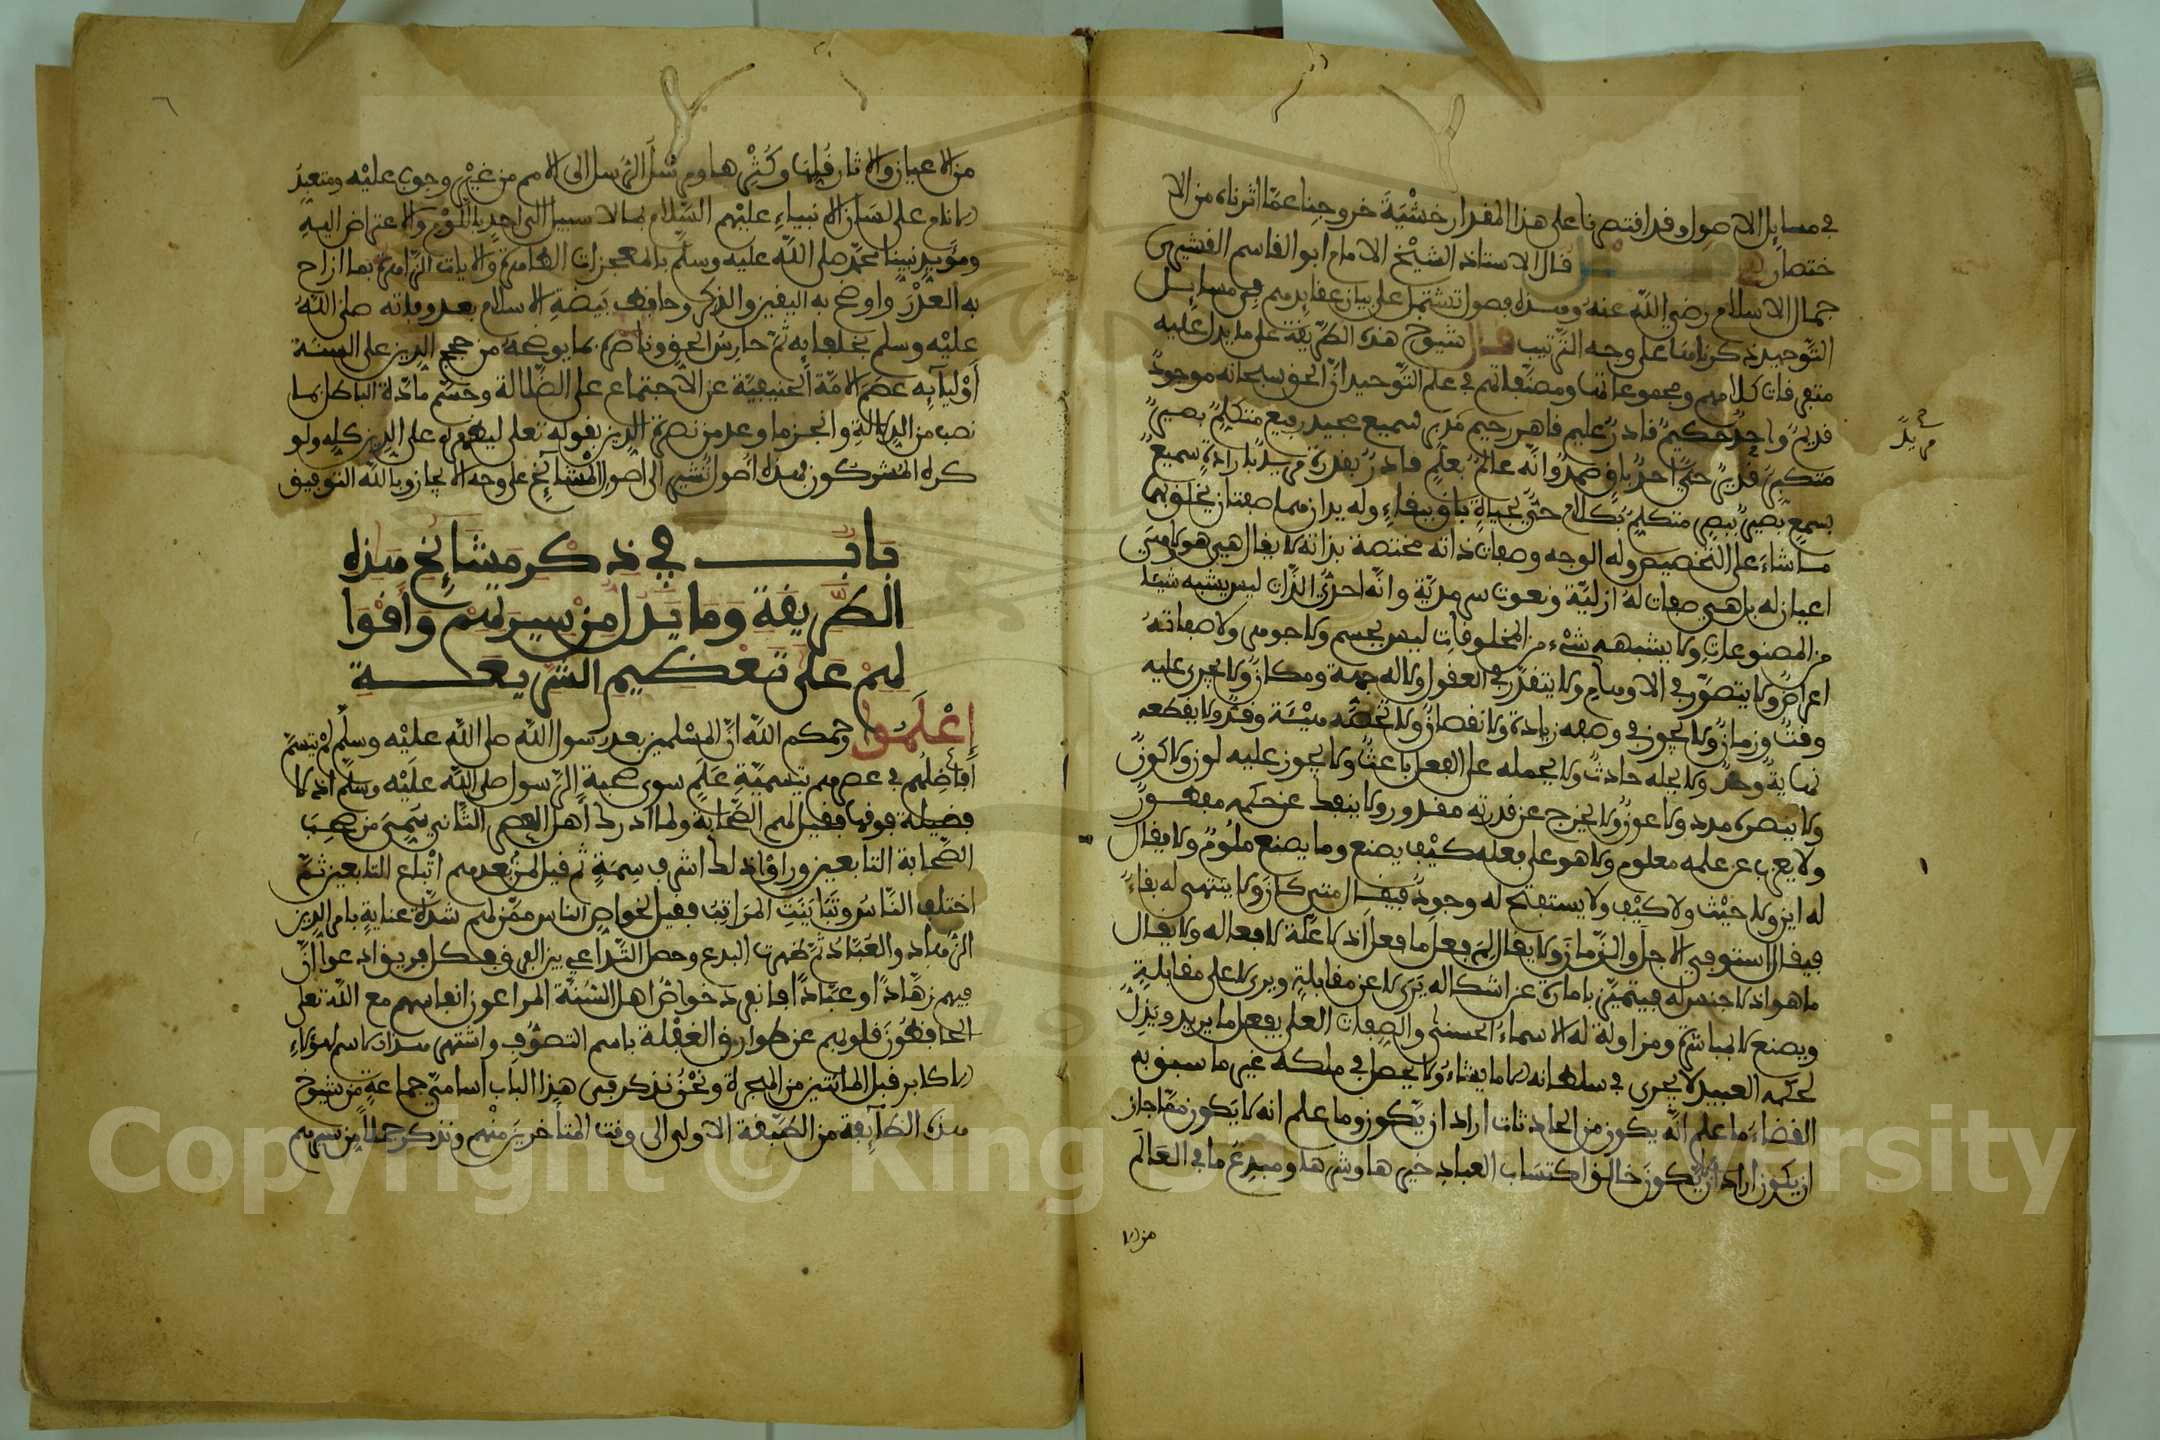 في مسايل الاصول وقد اقتصرنا على هذا المقدار خشية خروجنا عما اثرناه من الا
ختصار فصل قال الاستاذ الشيخ الامام ابو القاسم القشيري
جمال الاسلام رضي الله عنه وهذه فصول تشتمل على بيان عقايدهم في مسايل
التوحيد ذكرناها على وجه الترتيب قال شيوخ هذه الطريقة على ما يدل عليه
متفرقات كلامهم ومجموعاتها ومصنفاتهم في علم التوحيد ان الحق سبحانه موجود
قديم واحد حكيم قادر عليم قاهر رحيم مريد سميع مجيد رفيع متكلم بصير
مريد
متكبر قدير حي احد باق صمد وانه عالم بعلم قادر بقدرة مريد بارادة سميع
بسمع بصير ببصر متكلم بكلام حي بحياة باق ببقاء وله يدان هما صفتان يخلق بهما
ما شاء على التخصيص وله الوجه وصفات ذاته مختصة بذاته لا يقال هي هو ولا هي
اغيار له بل هي صفات له ازلية ونعوت سرمدية وانه احدي الذات ليس يشبه شيئا
من المصنوعات ولا يشبهه شيء من المخلوقات ليس بجسم ولا جوهر ولا صفاته
اعراض ولا يتصور في الاوهام ولا يتقدر في العقول ولا له جهة ومكان ولا يجري عليه
وقت وزمان ولا يجوز في وصفه زيادة ولا نقصان ولا تخصه هيئة وقد ولا يقطعه
نهاية وحد ولا يحله حادث ولا يحمله على الفعل باعث ولا يجوز عليه لون ولا كون
ولا ينصره مدد ولا عون ولا يخرج عن قدرته مقدور ولا ينفك عن حكمه مفطور
ولا يعزب عن علمه معلوم ولا هو على فعله كيف يصنع وما يصنع ملوم ولا يقال
له اين ولا حيث ولا كيف ولا يستفتح له وجود فيقال متى كان ولا ينتهي له بقاء
فيقال استوفى الاجل والزمان ولا يقال لم فعل ما فعل اذ لا علة لافعاله ولا يقال
ما هو اذ لا جنس له فيتميز بامارة عن اشكاله يرى لا عن مقابلة ويرى لا على مقابلة
ويصنع لا بمباشرة ومزاولة له الاسماء الحسنى والصفات العلى يفعل ما يريد ويذل
لحكمه العبيد لا يجري في سلطانه الا ما يشاء ولا يحصل في ملكه غير ما سبق به
القضاء ما علم انه يكون من الحادثات اراد ان يكون وما علم انه لا يكون مما جاز
ان يكون اراد ان لا يكون خالق اكتساب العباد خيرها وشرها ومبدع ما في العالم
من الا
من الاعيان والاثار قلها وكثرها ومرسل الرسل الى الامم من غير وجوب عليه ومتعبد
الانام على لسان الانبياء عليهم السلام بما لا سبيل الى احد باللوم والاعتراض اليه
ومؤيد نبينا محمد صلى الله عليه وسلم بالمعجزات الظاهرة والايات الزاهرة بما ازاح
به العذر واوضح به اليقين والذكر وحافظ بيضة الاسلام بعد وفاته صلى الله
عليه وسلم بخلفايه ثم حارس الحق وناصره بما يوضحه من حجج الدين على السنة
أوليآيه عصم الامة الحنيفية عن الاجتماع على الضلالة وحسم مادة الباطل بما
نصب من الدلالة وانجز ما وعد من نصرة الدين بقوله تعلى ليظهره على الدين كله ولو
كره المشركون فهذه اصول تشير الى اصول المشايخ على وجه الايجاز وبالله التوفيق
باب في ذكر مشايخ هذه
الطريقة وما يدل من سيرهم وأقوا
لهم على تعظيم الشريعة
إعلموا رحمكم الله ان المسلمين بعد رسول الله صلى الله عليه وسلم لم يتسم
أفاضلهم في عصرهم بتسمية علم سوى صحبة الرسول صلى الله عليه وسلم اذ لا
فضيلة فوقها فقيل لهم الصحابة ولما ادرك اهل العصر الثاني سمي من صحب
الصحابة التابعين وراوا ذلك اشرف سمة ثم قيل لمن بعدهم اتباع التابعين ثم
اختلف الناس وتباينت المراتب فقيل لخواص الناس ممن لهم شدة عناية بامر الدين
الزهاد والعباد ثم ظهرت البدع وحصل التداعي بين الفرق فكل فريق ادعوا ان
فيهم زهادا وعبادا فانفرد خواص اهل السنة المراعون انفاسهم مع الله تعلى
الحافظون قلوبهم عن طوارق الغفلة باسم التصوف واشتهر هذا الاسم لهؤلاء
الاكابر قبل المائتين من الهجرة ونحن نذكر في هذا الباب اسامي جماعة من شيوخ
هذه الطآئفة من الطبقة الاولى الى وقت المتأخرين منهم ونذكر جملا من سيرهم
Copyright © King Saud University